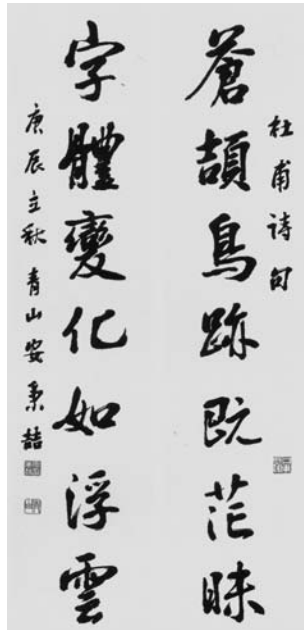 杜甫詩句
蒼頡鳥跡既茫昧
字體變化如浮雲
庚辰立秋青山安秉喆